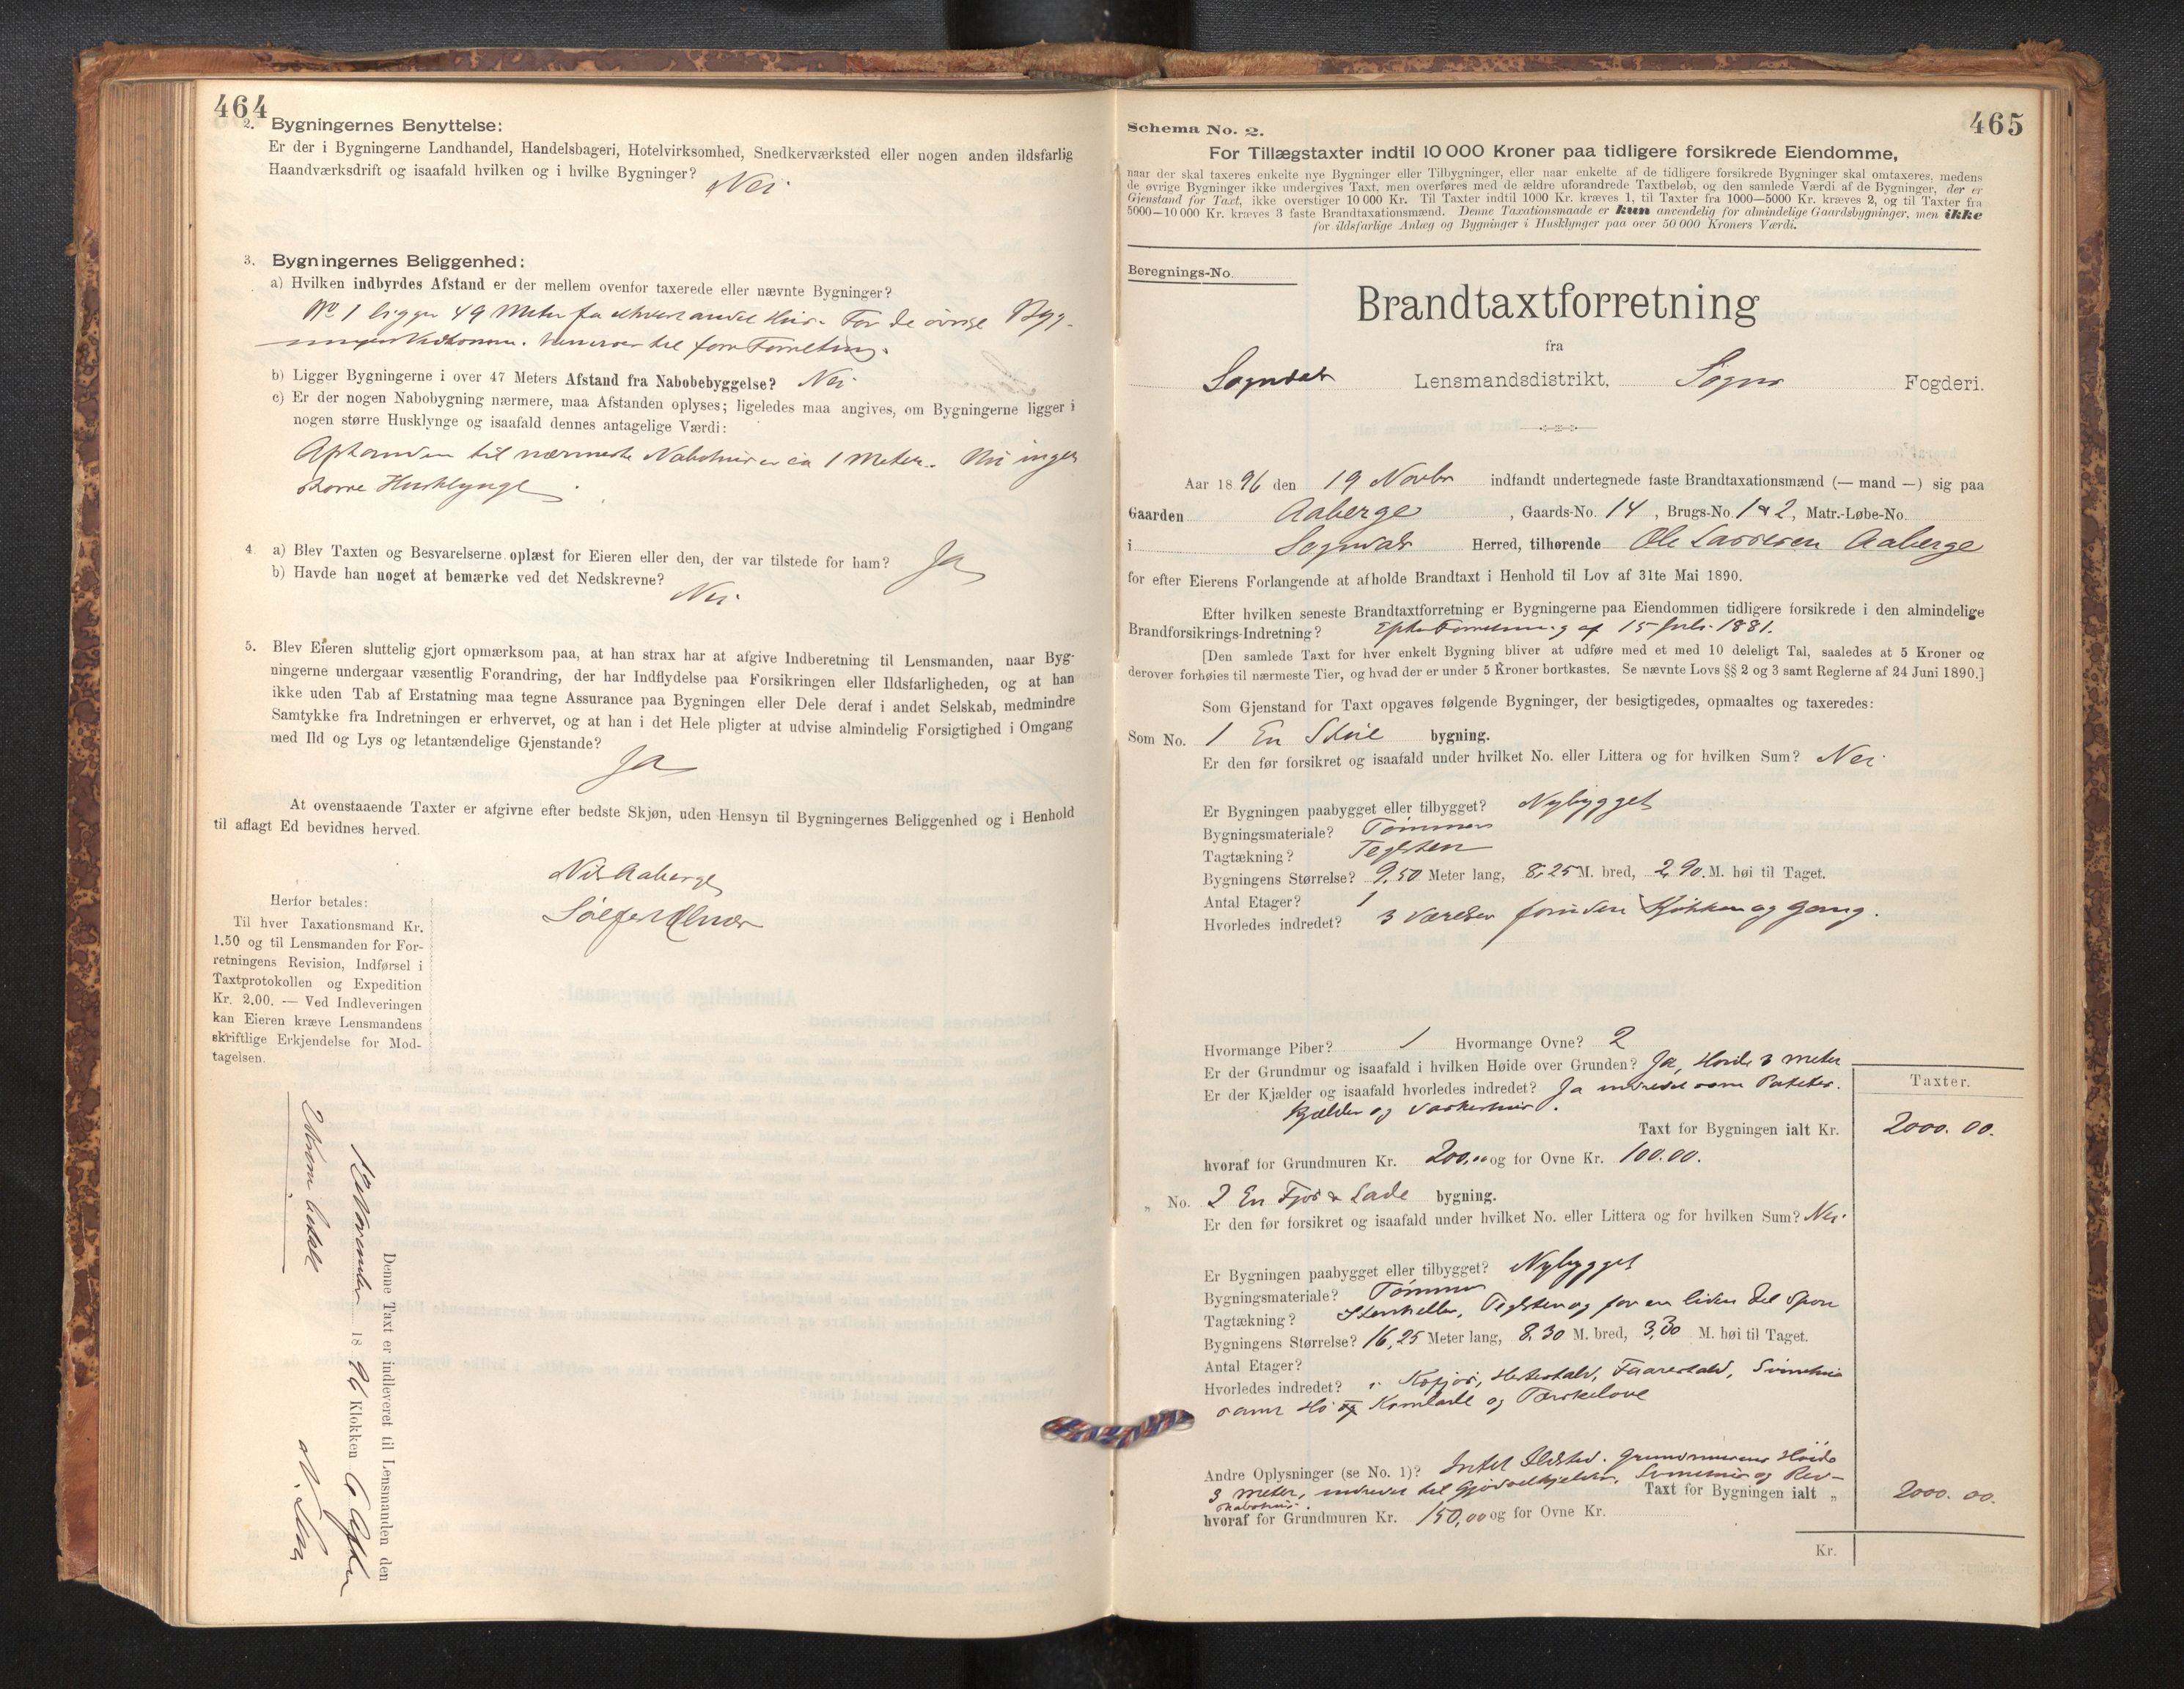 464
2. Bygningernes Benyttelse:
Er der i Bygningerne Landhandel, Handelsbageri, Hotelvirksomhed, Snedkerværksted eller nogen anden ildsfarlig
Haandværksdrift og isaafald hvilken og i hvilke Bygninger? Nei.
3. Bygningernes Beliggenhed:
a) Hvilken indbyrdes Afstand er der mellem ovenfor taxerede eller nævnte Bygninger?
No 1 ligger 49 Meter fra ethvert andet Hus. For de øvrige Byg-
ningers Vedkomm. henvises til forr Forretning.
b) Ligger Bygningerne i over 47 Meters Afstand fra Nabobebyggelse? Nei
c) Er der nogen Nabobygning nærmere, maa Afstanden oplyses; ligeledes maa angives, om Bygningerne ligger i
nogen større Husklynge og isaafald dennes antagelige Værdi:
Afstanden til nærmeste Nabohus er ca 1 Meter. Nei ingen
større Husklynge.
4. a) Blev Taxten og Besvarelserne oplæst for Eieren eller den, der var tilstede for ham? Ja
b) Havde han noget at bemærke ved det Nedskrevne? Nei.
5. Blev Eieren sluttelig gjort opmærksom paa, at han strax har at afgive Indberetning til Lensmanden, naar Byg-
ningerne undergaar væsentlig Forandring, der har Indflydelse paa Forsikringen eller Ildsfarligheden, og at han
ikke uden Tab af Erstatning maa tegne Assurance paa Bygningen eller Dele deraf i andet Selskab, medmindre
Samtykke fra Indretningen er erhvervet, og at han i det Hele pligter at udvise almindelig Forsigtighed i Omgang
med Ild og Lys og letantændelige Gjenstande?
Ja
At ovenstaaende Taxter er afgivne efter bedste Skjøn, uden Hensyn til Bygningernes Beliggenhed og i Henhold
til aflagt Ed bevidnes herved.
Nils Aaberge
Herfor betales:
Til hver Taxationsmand Kr.
1.50 og til Lensmanden for For-
retningens Revision, Indførsel i
Taxtprotokollen og Expedition
Kr. 2.00. — Ved Indleveringen
kan Eieren kræve Lensmandens
skriftlige Erkjendelse for Mod-
tagelsen.
Denne Taxt er indleveret til Lensmanden den
November 1896 Klokken 6 Efterm
2 Kroner betalt
465
Schema No. 2.
For Tillægstaxter indtil 10 000 Kroner paa tidligere forsikrede Eiendomme,
naar der skal taxeres enkelte nye Bygninger eller Tilbygninger, eller naar enkelte af de tidligere forsikrede Bygninger skal omtaxeres, medens
de øvrige Bygninger ikke undergives Taxt, men overføres med de ældre uforandrede Taxtbeløb, og den samlede Værdi af de Bygninger, der er
Gjenstand for Taxt, ikke overstiger 10 000 Kr. Til Taxter indtil 1000 Kr. kræves 1, til Taxter fra 1000—5000 Kr. kræves 2, og til Taxter fra
5000—10 000 Kr. kræves 3 faste Brandtaxationsmænd. Denne Taxationsmaade er kun anvendelig for almindelige Gaardsbygninger, men ikke
for ildsfarlige Anlæg og Bygninger i Husklynger paa over 50 000 Kroners Værdi.
Beregnings-No.
Brandtaxtforretning
fra
Sogndals Lensmandsdistrikt, Sogns Fogderi.
Aar 1896 den 19 Novbr indfandt undertegnede faste Brandtaxationsmænd (— mand —) sig paa
Gaarden Aaberge, Gaards-No. 14, Brugs-No. 1 & 2, Matr.-Løbe-No.
i Sogndals Herred, tilhørende Ole Lassesen Aaberge
for efter Eierens Forlangende at afholde Brandtaxt i Henhold til Lov af 31te Mai 1890.
Efter hvilken seneste Brandtaxtforretning er Bygningerne paa Eiendommen tidligere forsikrede i den almindelige
Brandforsikrings-Indretning? Efter Forretning af 15 Juli 1881.
[Den samlede Taxt for hver enkelt Bygning bliver at udføre med et med 10 deleligt Tal, saaledes at 5 Kroner og
derover forhøies til nærmeste Tier, og hvad der er under 5 Kroner bortkastes. Se nævnte Lovs §§ 2 og 3 samt Reglerne af 24 Juni 1890.]
Som Gjenstand for Taxt opgaves følgende Bygninger, der besigtigedes, opmaaltes og taxeredes:
Som No. 1 En Stue bygning.
Er den før forsikret og isaafald under hvilket No. eller Littera og for hvilken Sum? Nei
Er Bygningen paabygget eller tilbygget? Nybygget
Bygningsmateriale? Tømmer
Tagtækning? Teglsten
Bygningens Størrelse? 9,50 Meter lang, 8,25 M. bred, 2,90 M. høi til Taget.
Antal Etager? 1
Hvorledes indredet? 3 Værelser foruden Kjøkken og Gang.
Hvormange Piber? 1 Hvormange Ovne? 2
Er der Grundmur og isaafald i hvilken Høide over Grunden? Ja, Høide 3 meter
Er der Kjælder og isaafald hvorledes indredet? Ja indredet som Potetes-
kjælder og Vaskerhus.
Taxter.
Taxt for Bygningen ialt Kr. 2000.00.
hvoraf for Grundmuren Kr. 200,00 og for Ovne Kr. 100.00.
„ No. 2 En Fjøs & Lade bygning.
Er den før forsikret og isaafald under hvilket No. eller Littera og for hvilken Sum? Nei.
Er Bygningen paabygget eller tilbygget? Nybygget
Bygningsmateriale? Tømmer
Tagtækning? Stenheller, Teglsten og for en liden Del Spon
Bygningens Størrelse? 16,25 Meter lang, 8.30 M. bred, 3,30 M. høi til Taget.
Antal Etager?
Hvorledes indredet? Kofjøs, Hestestald, Faarestald, Svinehus
samt Hø og Kornlade og Tærskelove
Andre Oplysninger (se No. 1)? Intet Ildsted. Grundmurens Høide
3 Meter, indredet til Gjødselkjelder, Svinehus og Red-
skabshus.
Taxt for Bygningen ialt „ 2000.00.
hvoraf for Grundmuren Kr. 150,00 og for Ovne Kr.
Kr.